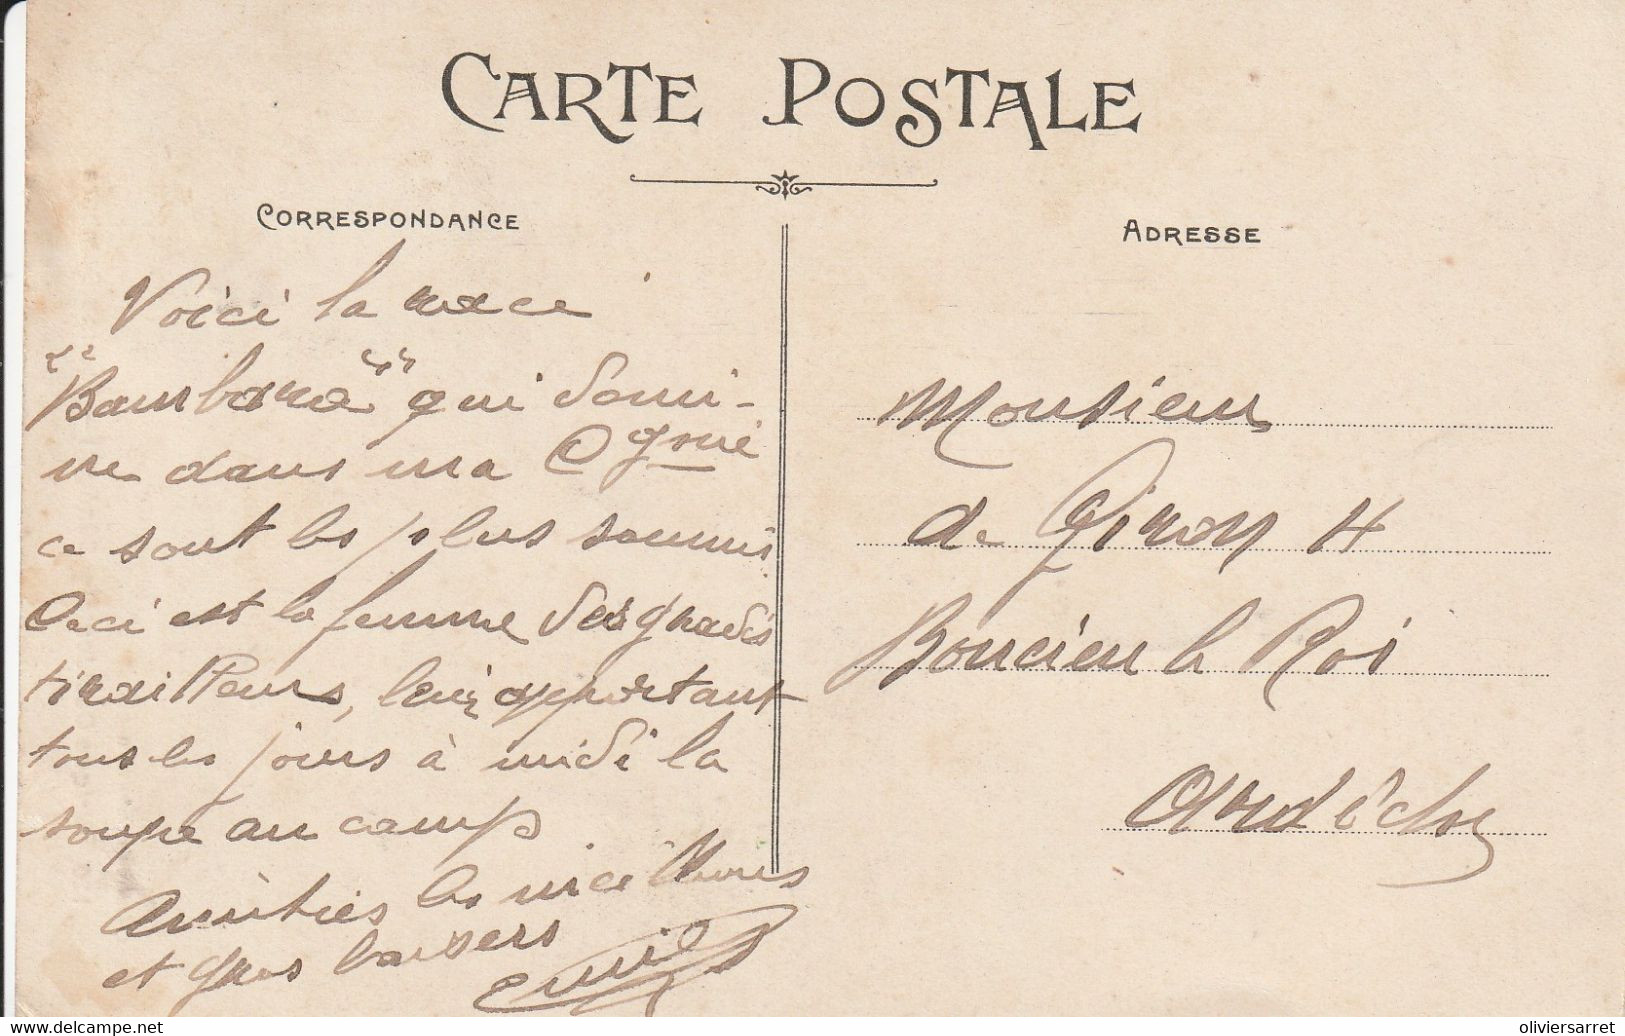 CARTE POSTALE
CORRESPONDANCE
Voici la race
"Bambara" qui domi-
ne dans ma Cgnie
ce sont les plus soumis
Ceci est la femme des gradés
tirailleurs, leur apportant
tous les jours à midi la
soupe au camp
Amitiés les meilleures
et gros baisers
Emile
ADRESSE
Monsieur
de Giron H
Boucieu le Roi
Ardèche
oliviersarret